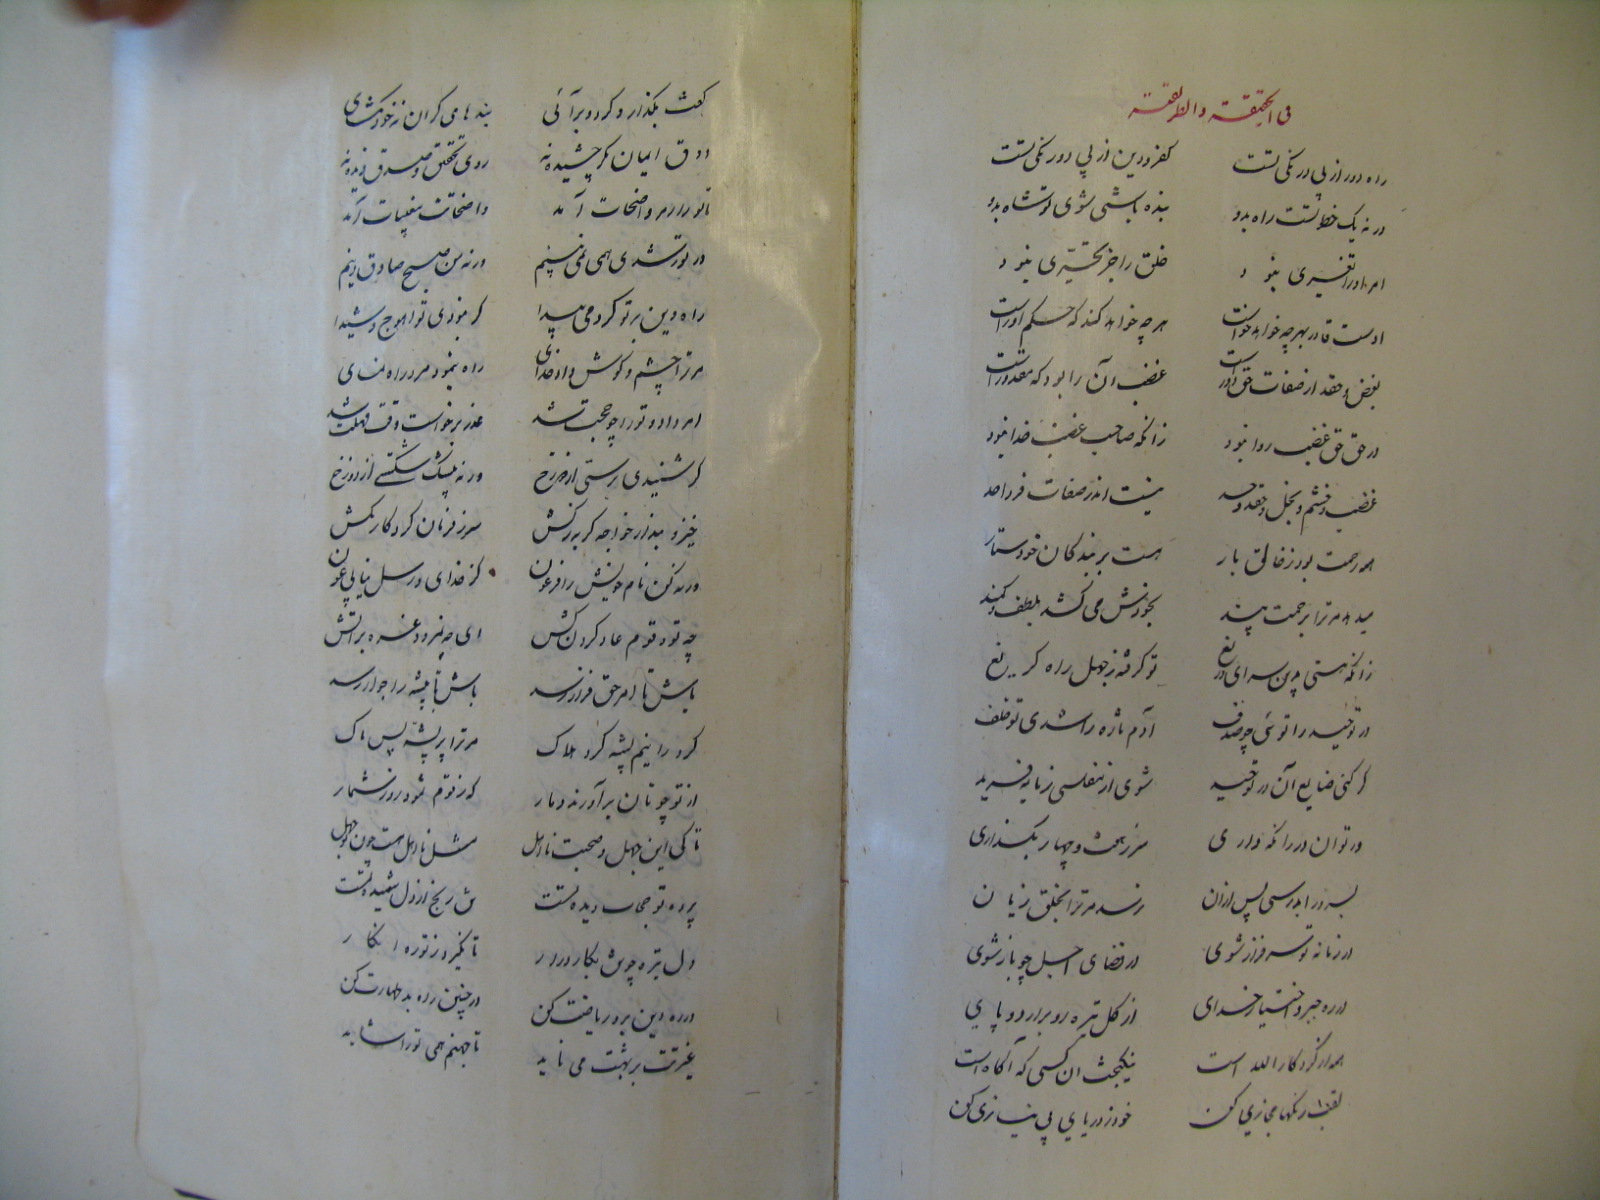 فی الحقیقة والطریقة
راه دور از پی درنگی تست کفر و دین از پی دو رنگی تست
ور نه یک خطوتست راه بدو بنده باشی شوی تو شاه بدو
امر او را تغیری نبود خلق را جز تحیری نبود
اوست قادر بهر چه خواهد خواست هر چه خواهد کند که حکم او راست
بغض و حقد از صفات حق دورست غضب آن را بود که مقدورست
در حق حق غضب روا نبود زانکه صاحب غضب خدا نبود
غضب و خشم و بخل و حقد و حسد نیست اندر صفات فرد احد
همه رحمت بود ز خالق بار هست بر بندگان خود ستار
میدهد مر ترا برحمت پند بخودش می کشد بلطف و کمند
زانکه هستی بدین سرای دریغ تو گرفته ز جهل راه گریغ
در توحید را توئی چو صدف آدم تازه را شدی تو خلف
گر کنی ضایع آن در توحید شوی از مفلسی ز مایه فرید
ور توان در را نگه داری سر ز هفت و چهار بگذاری
بسرور ابد رسی پس ازان نرسد مر ترا بخلق زیان
در زمانه تو سرفراز شوی در فضای اجل چو باز شوی
در ره جبر و اختیار خدای از گل تیره رو برار دو پای
همه از کردگار الله است نیکبخت ان کسی که آگاه است
لقب رنگها مجازی کن خور ز دریای بی نیازی کن
گفت بگذار و گرد و برآئی بند ها می گران نه خود کشای
ذوق ایمان مگر چشیده نه روی تحقیق و صدق دیده نه
تا تو را رمز واضحات آمد واضحاتت مغیبات آمد
در تو رشدی همی نمی بینم ور نه من صبح صادق دینم
راه دین بر تو کردمی پیدا گر نبودی تو اهوج و شیدا
مر ترا چشم و گوش داد خدای راه بنمود مرد راه نمای
امر داد و تو را چو حجت شد عذر برخواست وقت مهلت شد
گر شنیدی رستی از برزخ ور نه پیشک شکستی از دوزخ
خیز و بیدار خواجه گر به رنش سر ز فرمان کردگار مکش
ور نه کن نام خویش را فرعون کز خدای و رسل نیابی عون
چه تو و قوم عاد گردن کش ای چه نمرود غره بر آتش
باش تا امر حق فراز رسد باش تا پشه را جواز رسد
کرد را نیم پشه کرد هلاک مر ترا پر پشه پس باک
از تو چونان برآورند دمار که ز قوم ثمود روز شمار
تا کی این جهل و صحبت نااهل مثل نااهل هست چون بوجهل
پرده تو حجاب دیده تست رنج از دل شمیده تست
دل تیره چون بکار در ار تا نگیرد ز تو ره انکار
در ره دین برو ریاضت کن در چنین ره بد طهارت کن
غیرتت بر بهشت می ناید تا جهنم همی تو را شاید